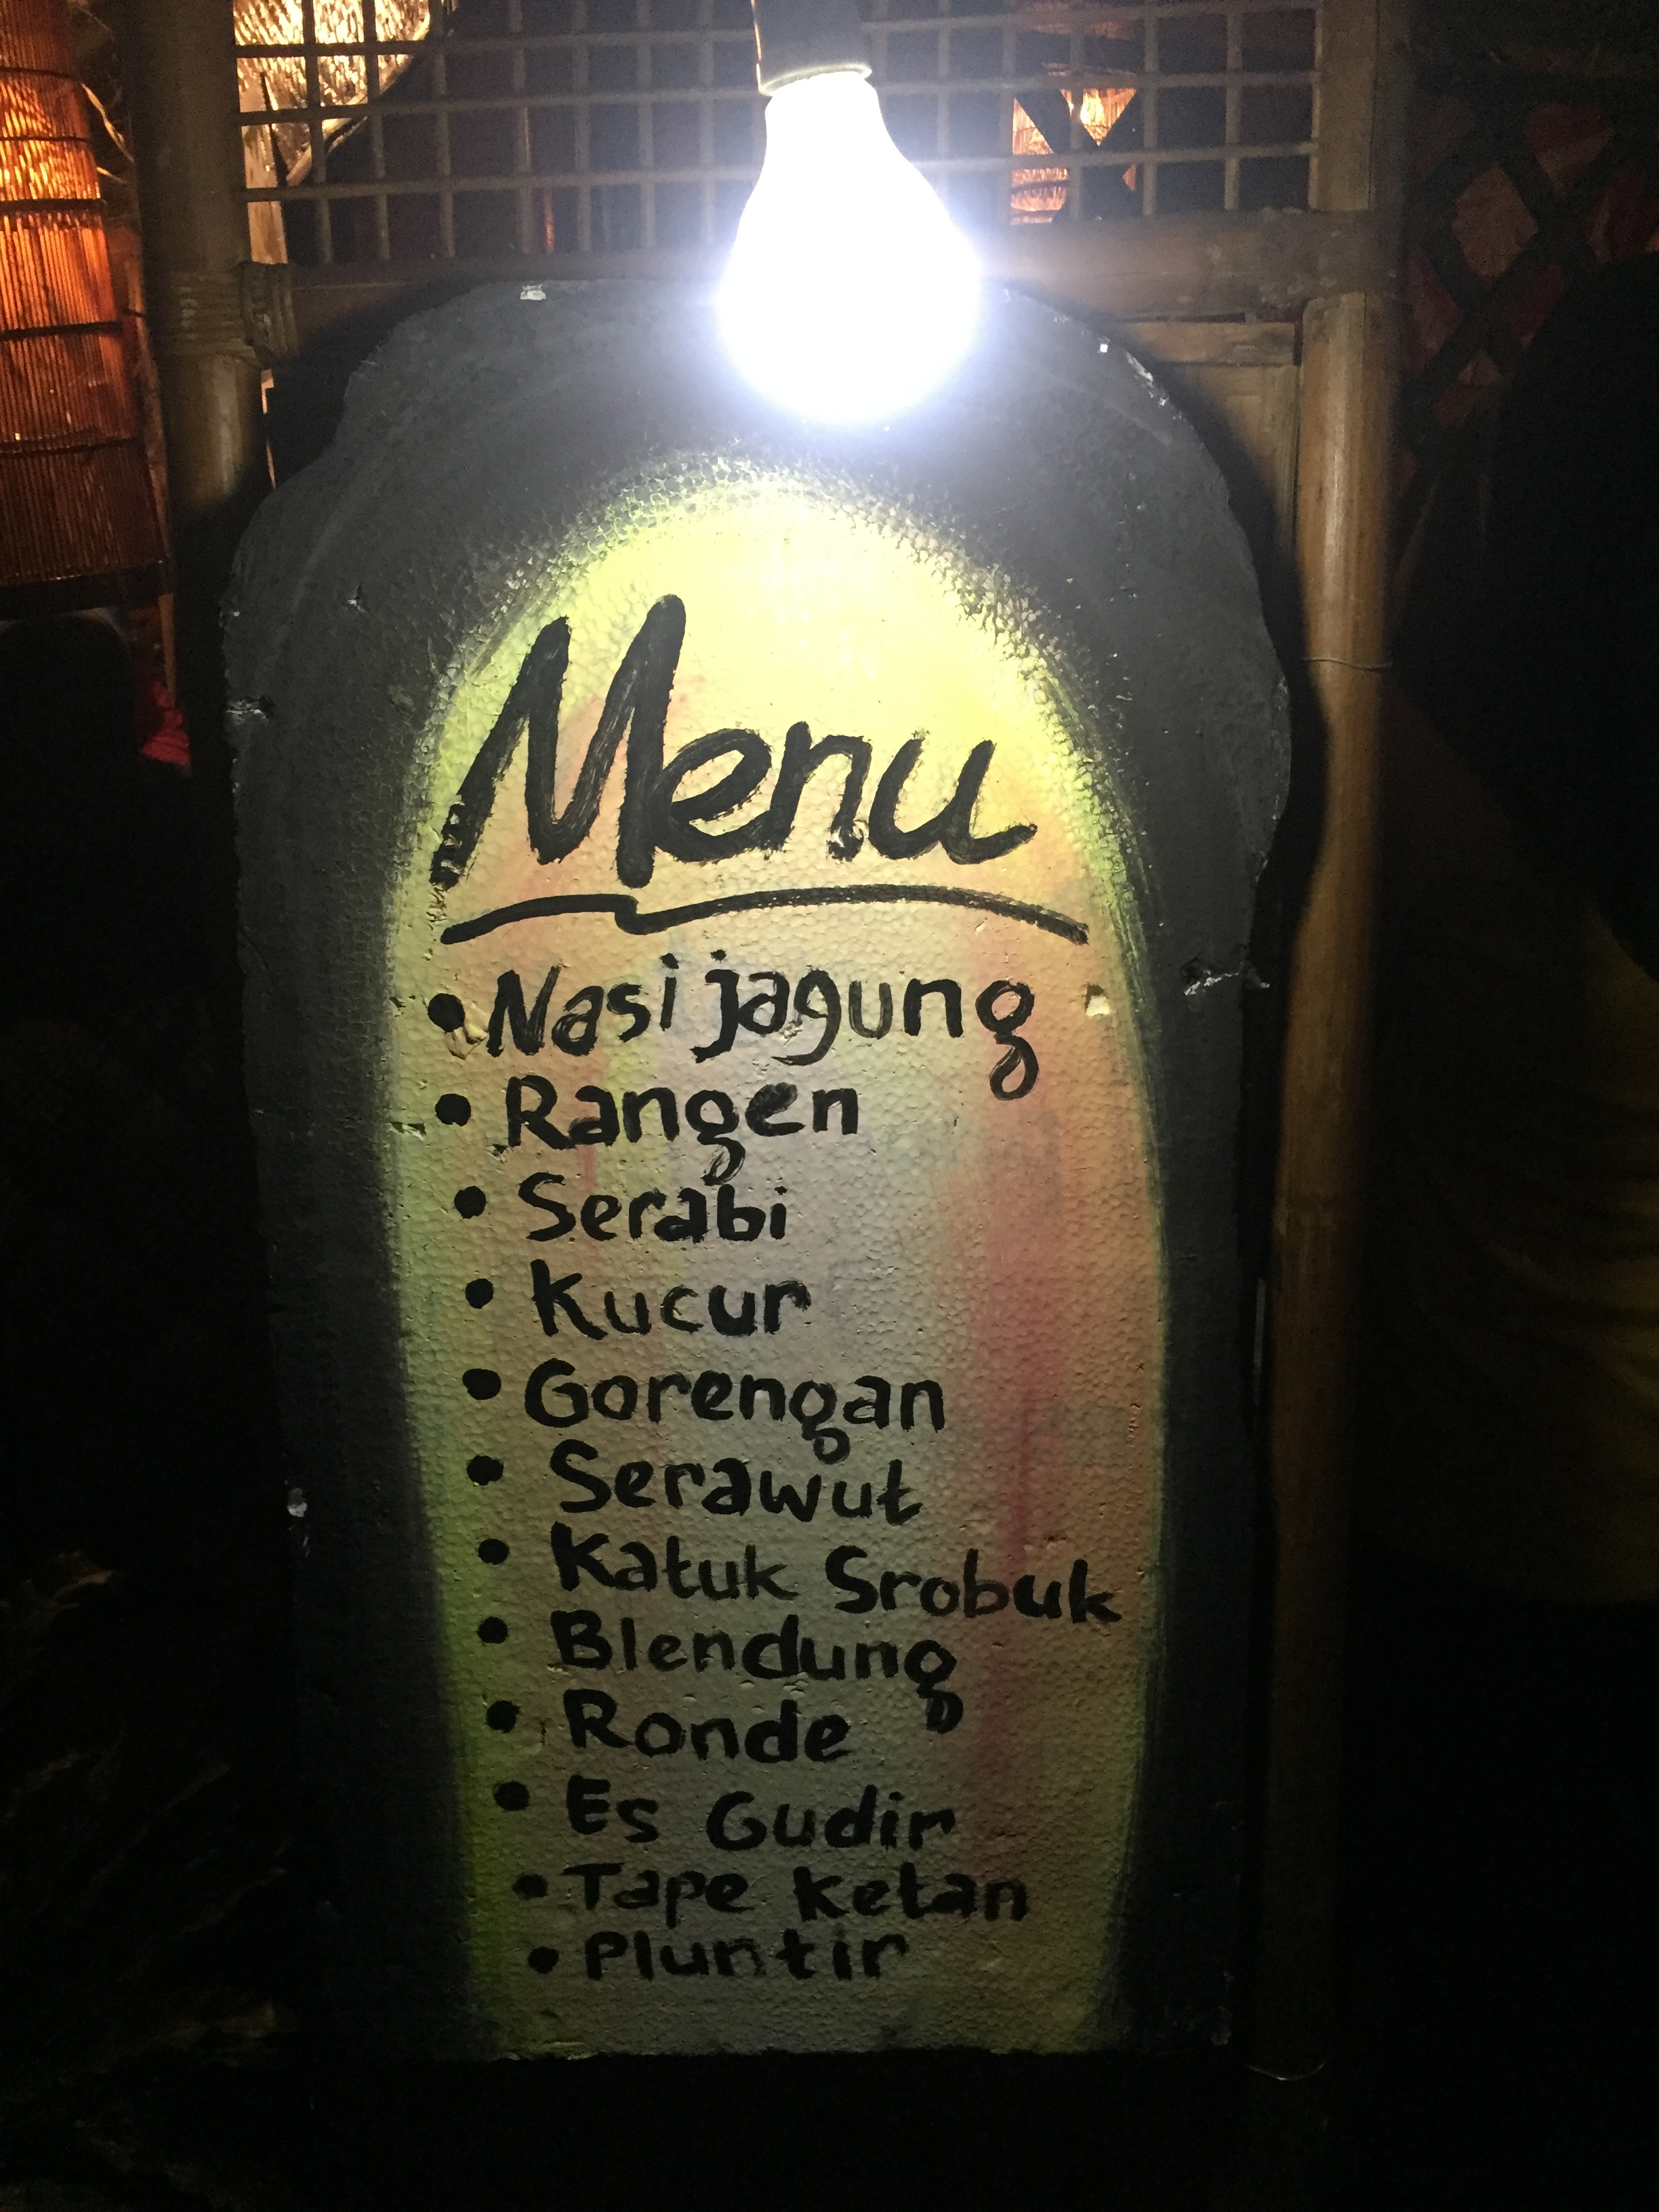 Menu
• Nasi jagung
• Rangen
• Serabi
• Kucur
• Gorengan
• Serawut
• Katuk Srobuk
• Blendung
• Ronde
• Es Gudir
• Tape Ketan
• Pluntir